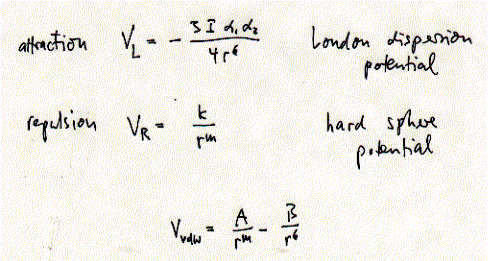 attraction V_L = - 3 I α₁ α₂ / 4 r⁶ London dispersion potential
repulsion V_R = k / r^m hard sphere potential
V_vdw = A / r^m - B / r⁶